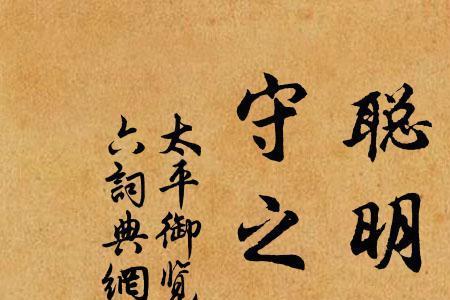 聪明
守之
太平御览
六詞典網